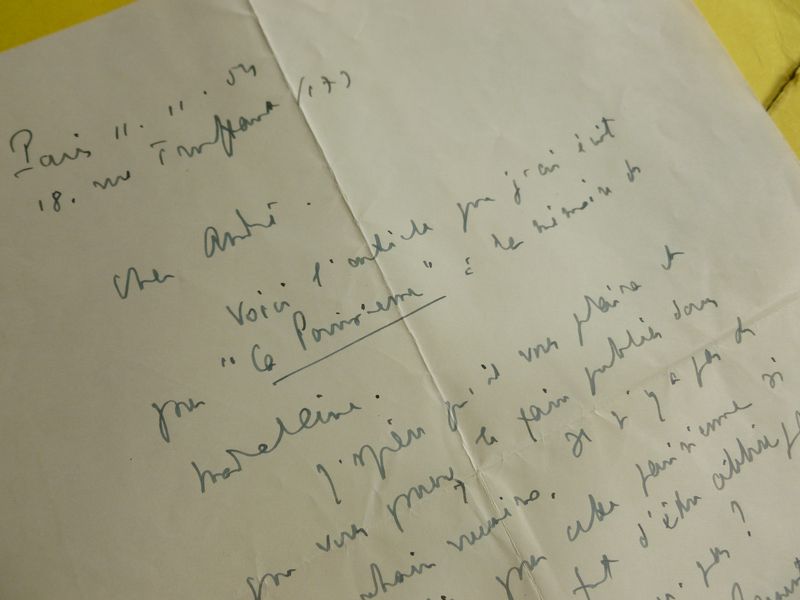 Paris 11. 11. 54
18. rue Truffaut (17)
cher André.
voici l'article que j'ai écrit
pour "La Parisienne" à la mémoire de
Madeleine.
J'espère qu'il vous plaira et
que vous pourrez le faire publier dans
prochain numéro. Il n'y a pas de
pour cette parisienne si
fut d'être célébrée
pas ?